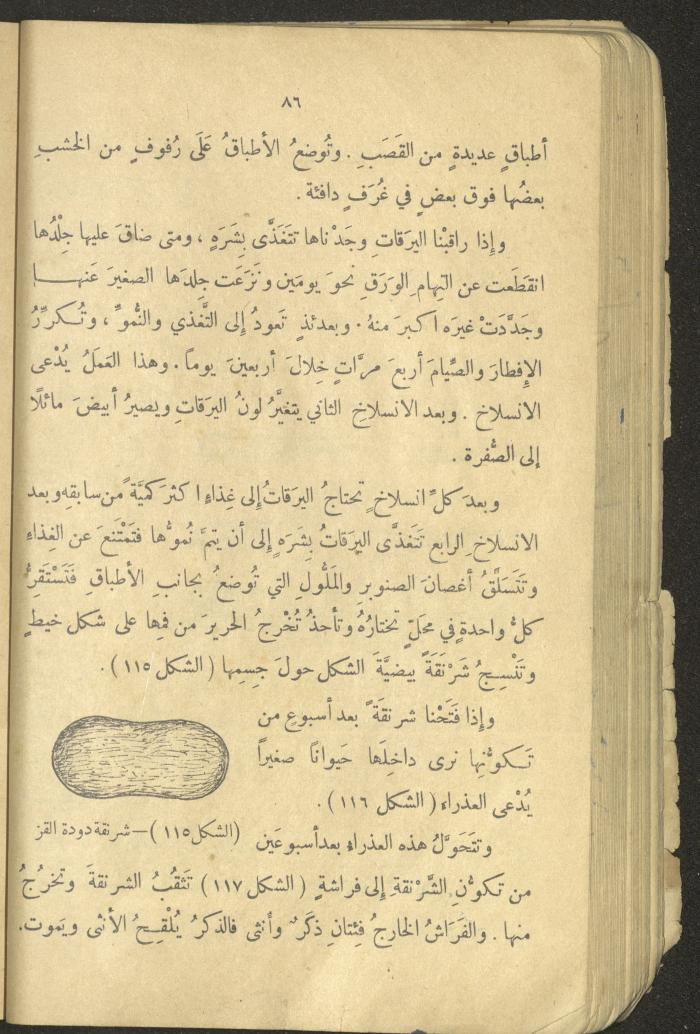 ٨٦
أطباقٍ عديدةٍ من القَصَبِ . وتُوضعُ الأطباقُ عَلَى رُفوفٍ من الخشبِ
بعضُها فوق بعضٍ في غُرَفٍ دافئة .
وإِذا راقبْنا اليرَقاتِ وجَدْناها تتَغَذَّى بِشَرَهٍ ، ومتى ضاقَ عليها جِلْدُها
انقطَعت عن التِهامِ الوَرَقِ نحوَ يومَين ونَزَعَت جِلدَها الصغيرَ عَنهــا
وجَدَّدَتْ غيرَه اكبرَ منهُ . وبعدئذٍ تَعودُ إِلى التَّغذي والنُّموِّ ، وتُكرِّرُ
الإِفطارَ والصِّيامَ أربعَ مرَّاتٍ خِلالَ أربعينَ يوماً . وهذا العَمَلُ يُدْعى
الانسلاخ . وبعد الانسلاخِ الثاني يتغيَّرُ لونُ اليرَقاتِ ويصيرُ أبيضَ مائلًا
إلى الصُّفرة .
وبعدَ كلِّ انسلاخٍ تحتاجُ اليرَقاتُ إِلى غِذاءٍ اكثرَ كمِّيَّةً من سابقِه وبعد
الانسلاخِ الرابع تَتَغذَّى اليرَقاتُ بِشَرَهٍ إِلى أن يتمَّ نُموُّها فتَمْتَنعَ عن الغِذاءِ
وتَتَسَلَّقُ أغصانَ الصنوبرِ والمَلُّولِ التي تُوضعُ بجانبِ الأطباقِ فَتَسْتَقِرُّ
كلُّ واحدةٍ في محَلٍّ تختارُهُ وتأخذُ تُخْرجُ الحريرَ من فمِها على شكل خيطٍ
وتَنْسِجُ شَرْنَقَةً بيضيَّةَ الشكل حولَ جسِمِها ( الشكل ١١٥ ) .
وإِذا فَتَحْنا شرنقةً بعد أسبوعٍ من
تَكوُّنِها نرى داخِلَها حَيواناً صغيراً
يُدْعى العذراء ( الشكل ١١٦ ) .
وتتَحَوَّلُ هذه العذراء بعد أسبوعَين
(الشكل ١١٥ )–شرنقة دودة القز
من تكوُّنِ الشَّرْنقةِ إِلى فراشةٍ ( الشكل ١١٧ ) تَثقُبُ الشرنقةَ وتخرُجُ
منها . والفَرَاشُ الخارجُ فئتانِ ذكَرٌ وأنثى فالذكرُ يُلْقِحُ الأنثى ويَموت.